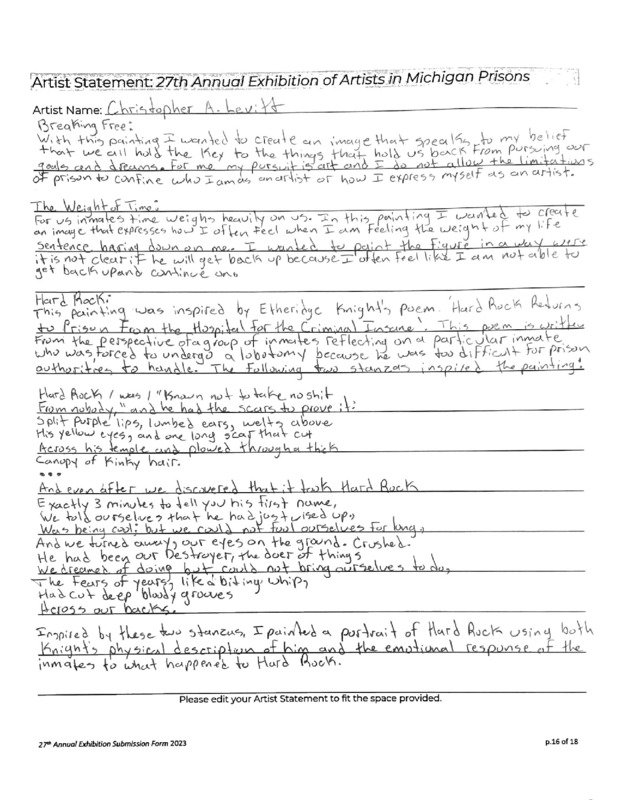 Artist Statement: 27th Annual Exhibition of Artists in Michigan Prisons
Artist Name: Christopher A. Levitt
Breaking Free:
With this painting I wanted to create an image that speaks to my belief
that we all hold the Key to the things that hold us back from pursuing our
goals and dreams. For me my pursuit is art and I do not allow the limitations
of prison to confine who I am as an artist or how I express myself as an artist.
The Weight of Time:
For us inmates time weighs heavily on us. In this painting I wanted to create
an image that expresses how I often feel when I am feeling the weight of my life
sentence baring down on me. I wanted to paint the figure in a way were
it is not clear if he will get back up because I often feel like I am not able to
get back up and continue on.
Hard Rock:
This painting was inspired by Etheridge Knight's poem 'Hard Rock Returns
to Prison From the Hospital for the Criminal Insane'. This poem is written
From the perspective of a group of inmates reflecting on a particular inmate
who was forced to undergo a lobotomy because he was too difficult for prison
authorities to handle. The following two stanzas inspired the painting:
Hard Rock / was / "Known not to take no shit
From nobody," and he had the scars to prove it:
Split purple lips, lumbed ears, welts above
His yellow eyes, and one long scar that cut
Across his temple and plowed through a thick
Canopy of Kinky hair.
...
And even after we discovered that it took Hard Rock
Exactly 3 minutes to tell you his first name,
We told ourselves that he had just wised up,
Was being cool; but we could not fool ourselves for long,
And we turned away, our eyes on the ground. Crushed.
He had been our Destroyer, the doer of things
We dreamed of doing but could not bring ourselves to do,
The Fears of years, like a biting whip,
Had cut deep bloody grooves
Across our backs.
Inspired by these two stanzas, I painted a portrait of Hard Rock using both
Knight's physical description of him and the emotional response of the
inmates to what happened to Hard Rock.
Please edit your Artist Statement to fit the space provided.
27th Annual Exhibition Submission Form 2023
p.16 of 18